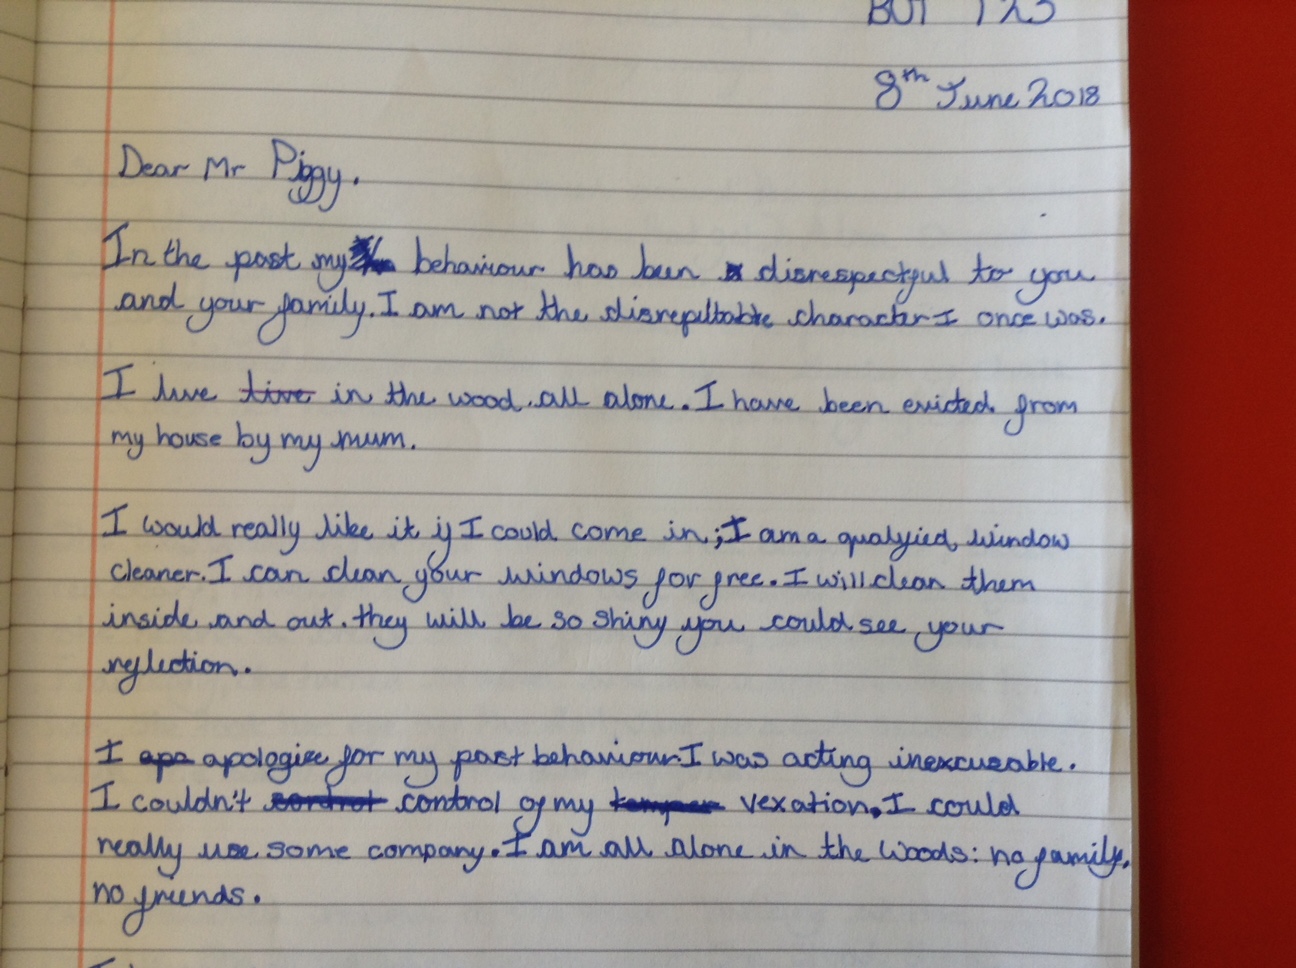 8th June 2018
Dear Mr Piggy.
In the past my behaviour has been disrespectful to you
and your family. I am not the disreputable character I once was.
I live live in the wood all alone. I have been evicted from
my house by my mum.
I would really like it if I could come in; I am a qualyfied window
cleaner. I can clean your windows for free. I will clean them
inside and out. they will be so shiny you could see your
reflection.
I apo apologise for my past behaviour. I was acting inexcusable.
I couldn't control control of my temper vexation. I could
really use some company. I am all alone in the woods: no family,
no friends.